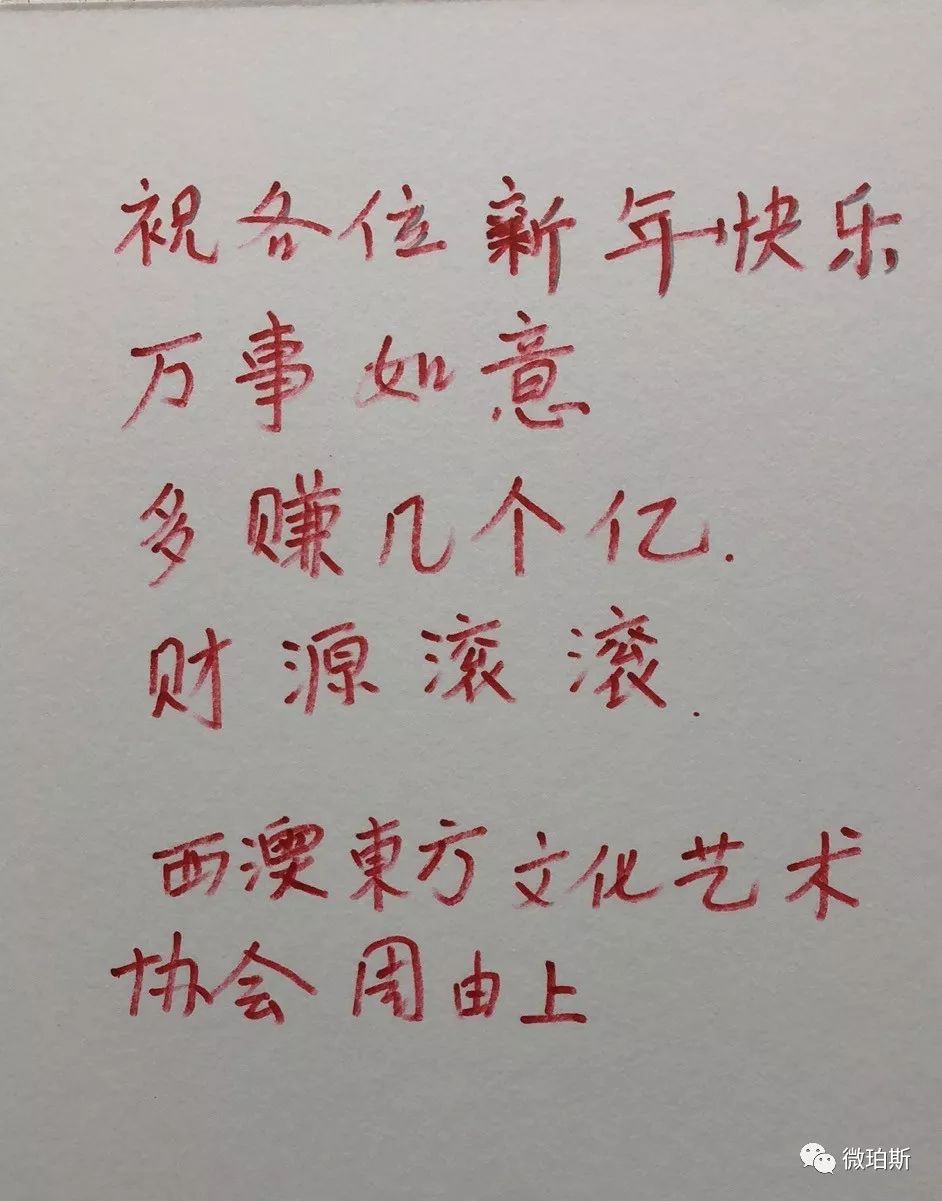 祝各位新年快乐
万事如意
多赚几个亿.
财源滚滚.
西澳東方文化艺术
协会 周由上
微珀斯